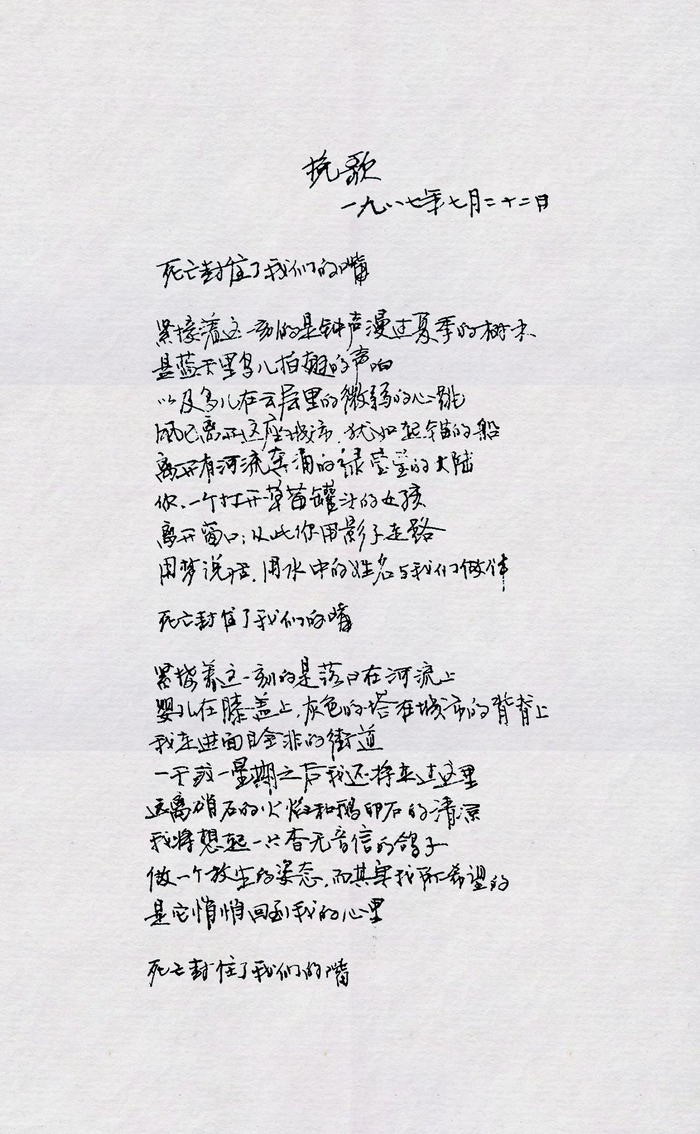 挽歌
一九八七年七月二十二日
死亡封住了我们的嘴
紧接着这一刻的是钟声漫过夏季的树木
是蓝天里鸟儿拍翅的声响
以及鸟儿在云层里的微弱的心跳
风已离开这座城市，犹如起锚的船
离开有河流奔涌的绿莹莹的大陆
你，一个打开草莓罐头的女孩
离开窗口；从此你用影子走路
用梦说话，用水中的姓名与我们做伴
死亡封住了我们的嘴
紧接着这一刻的是落日在河流上
婴儿在膝盖上，灰色的塔在城市的背脊上
我走进面目全非的街道
一天或一星期之后我还将走过这里
远离硝石的火焰和鹅卵石的清凉
我将想起一只杳无音信的鸽子
做一个放生的姿态，而其实我所希望的
是它悄悄回到我的心里
死亡封住了我们的嘴